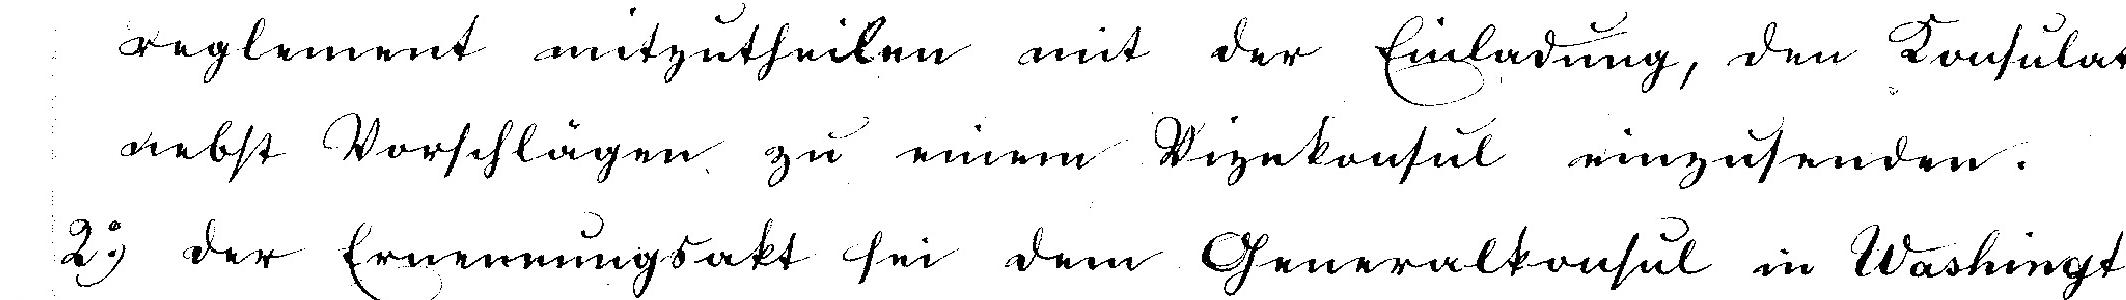 reglement mitzutheilen mit der Einladung, den Konsulat
nebst Vorschlägen zu einem Vizekonsul einzusenden.
2.) der Ernennungsakt sei dem Generalkonsul in Washingt